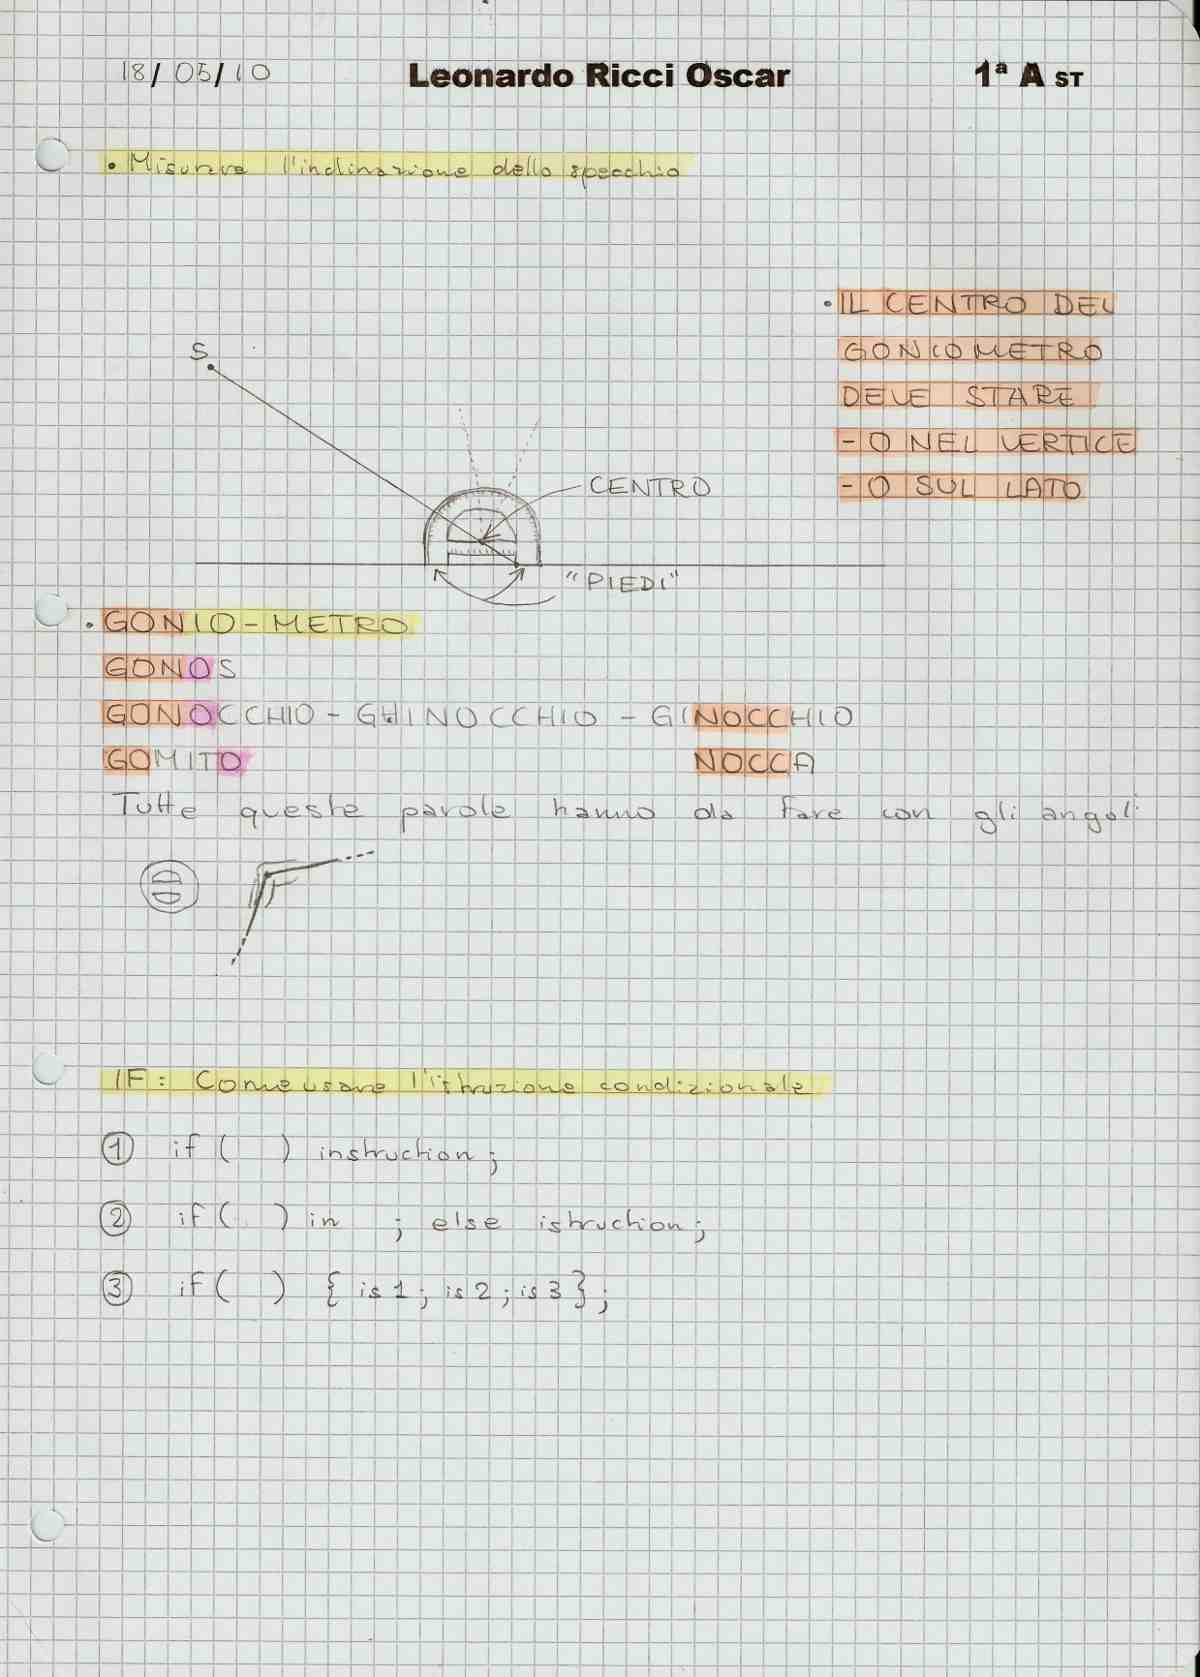 18/05/10 Leonardo Ricci Oscar 1ª A ST
• Misurare l'inclinazione dello specchio
• IL CENTRO DEL
GONIOMETRO
DEVE STARE
- O NEL VERTICE
- O SUL LATO
S
CENTRO
"PIEDI"
• GONIO-METRO
GONOS
GONOCCHIO - GHINOCCHIO - GINOCCHIO
GOMITO NOCCA
Tutte queste parole hanno da fare con gli angoli
IF: Come usare l'istruzione condizionale
① if ( ) instruction;
② if ( ) in ; else istruction;
③ if ( ) { is1; is2; is3};